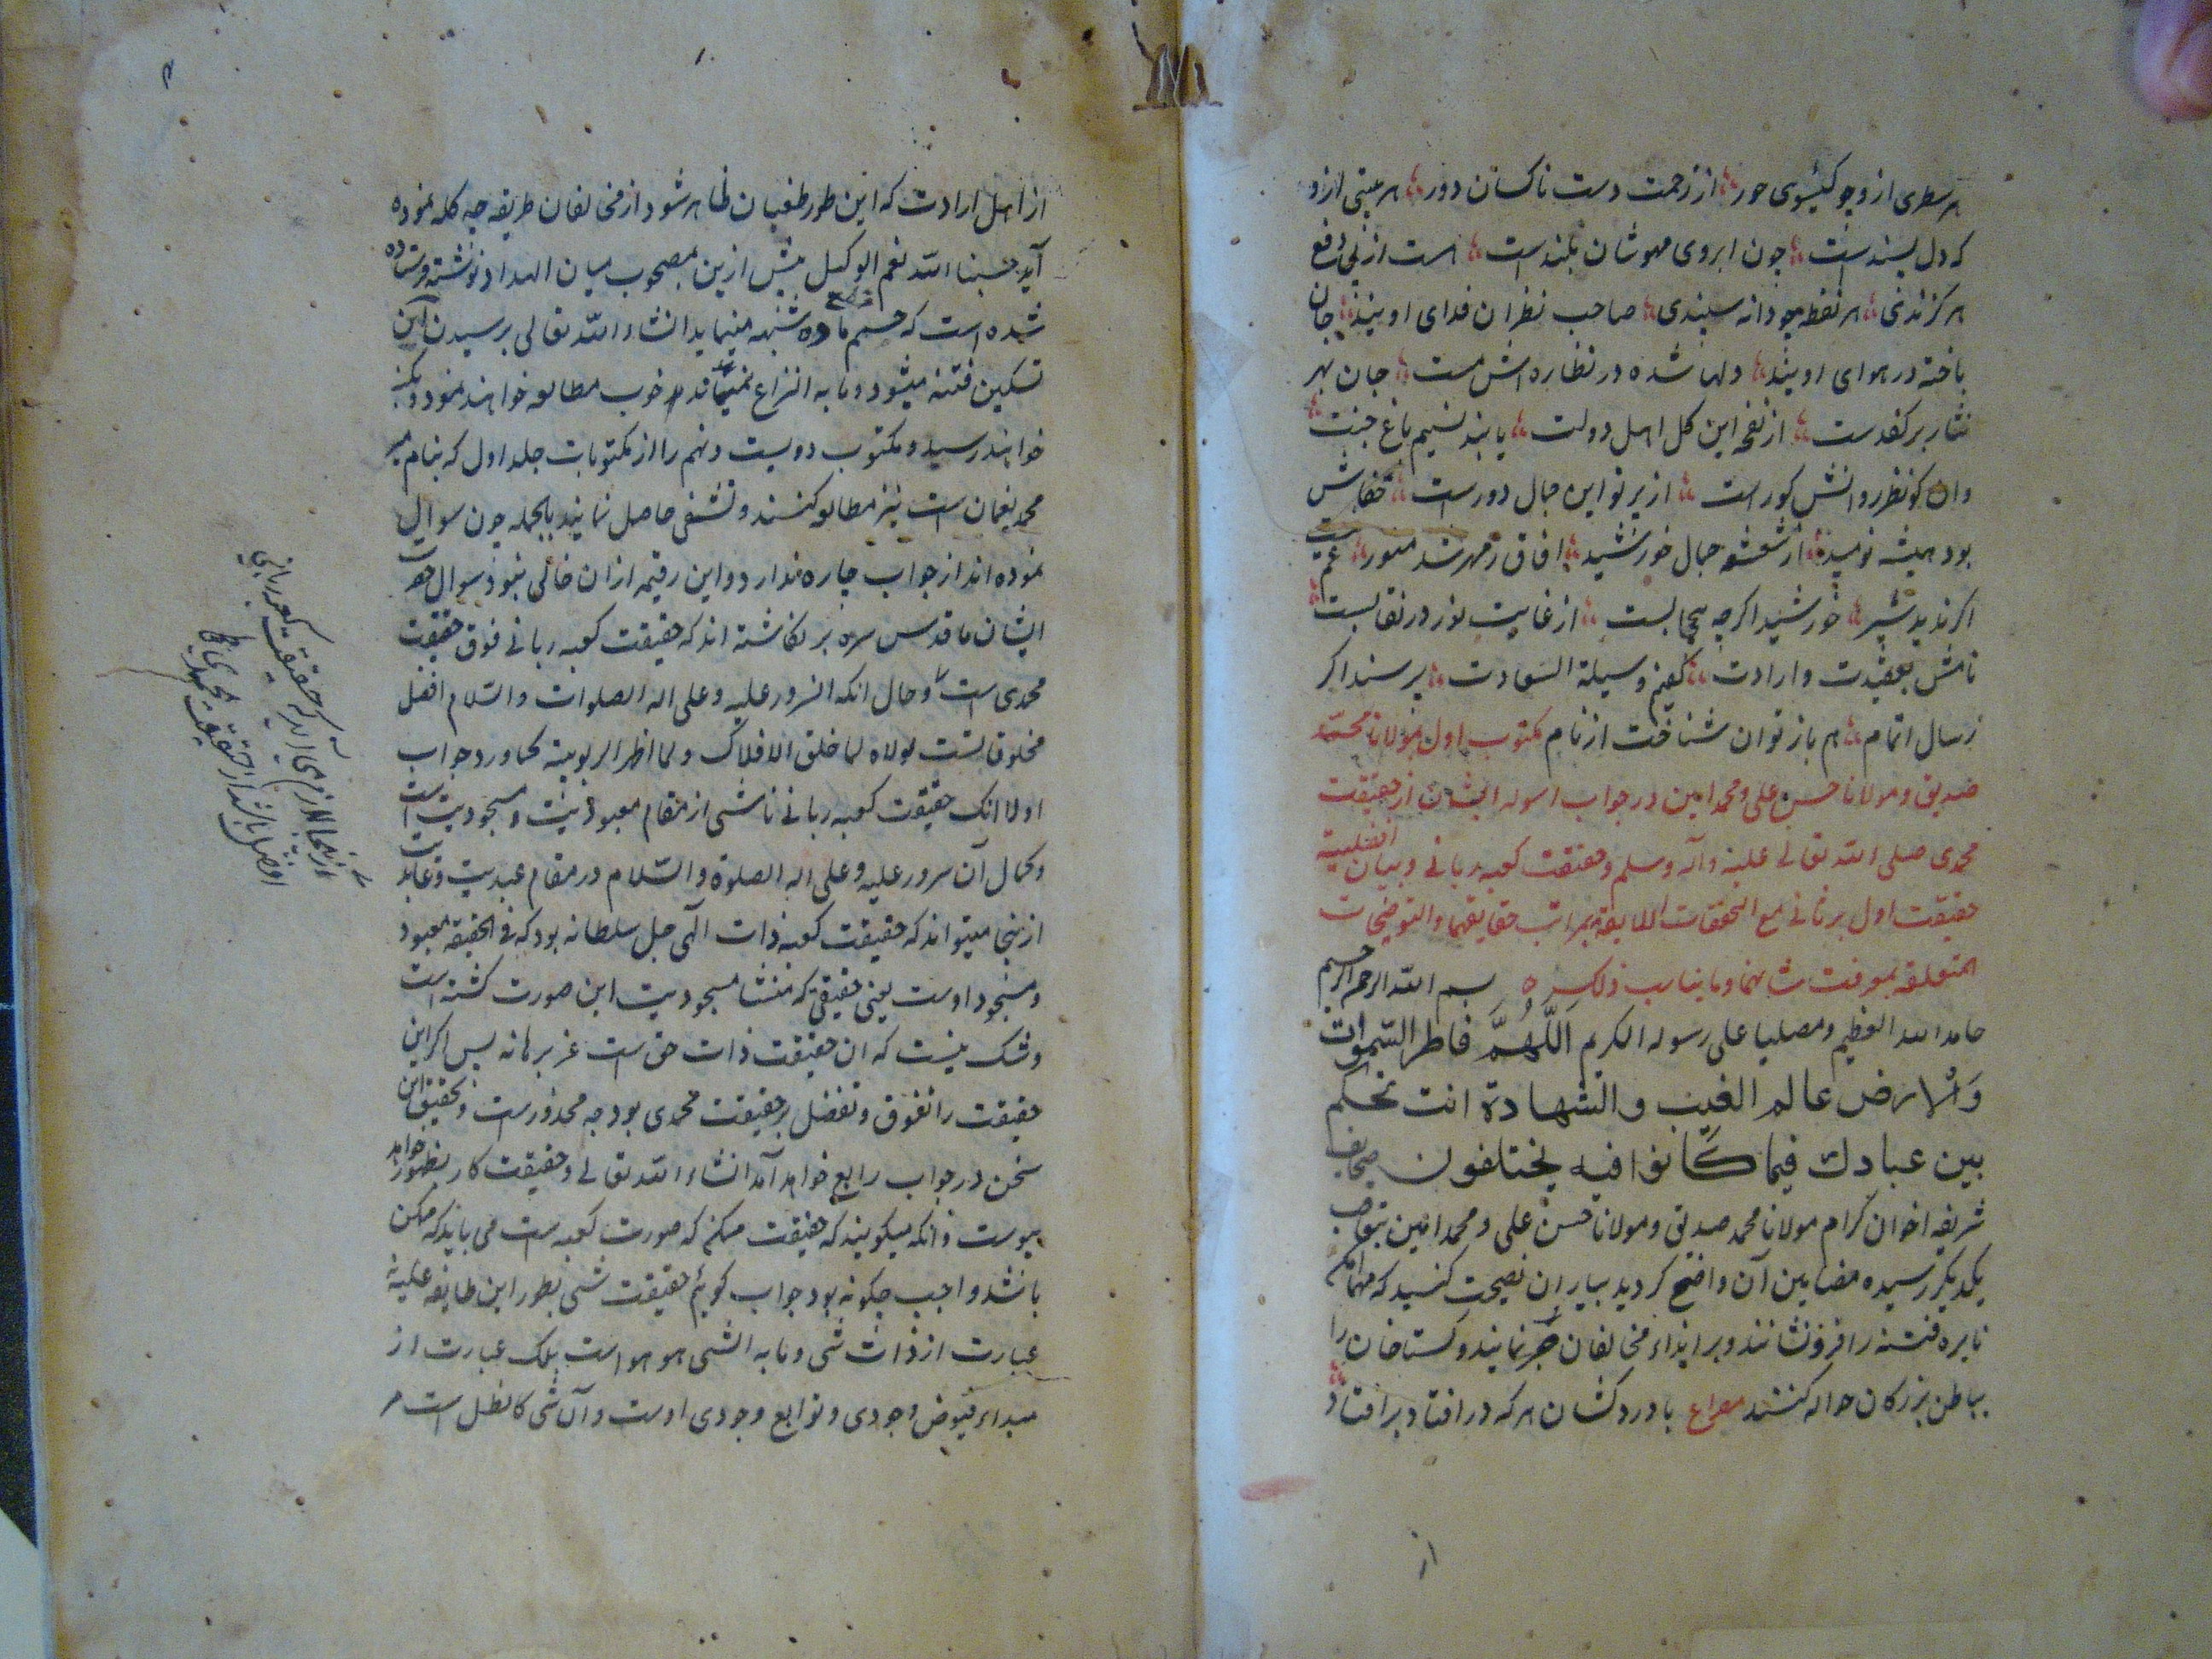 هر سطری از و چو کیسوی حور از زحمت دست ناکسان دور هر بیتی ازو
که دل پسندست چون ابروی مهوشان بلندست هست از پی دفع
هر کزندی هر نقطه چو دانه سپندی صاحب نظران فدای اویند جان
باخته در هوای اویند دلها شده در نظاره اش مست جان بهر
نثار بر کف دست از نفحه این کل اهل دولت یابند نسیم باغ جنت
وان کو نظر روانش کورست از پرتو این جمال دورست خفاش
بود همیشه نومید از شعشه جمال خورشید افاق ز مهر شد منور
اکر ندید شپر خورشید اکرچه بیحجابست از غایت نور در نقابست
نامش بعقیدت و ارادت کفتم وسیلة السعادت پرسند اکر
ز سال اتمام هم باز توان شناخت از نام مکتوب اول بمولانا محمد
صدیق و مولانا حسن علی و محمد امین در جواب اسوله ایشان از حقیقت
محمدی صلی الله تعالی علیه وآله وسلم و حقیقت کعبه ربانی و بیان افضلیة
حقیقت اول بر ثانی مع التحقیقات اللایقة بمراتب حقایقهما والتوضیحات
المتعلقه بمعرفت شانهما وما یناسب ذلک بسم الله الرحمن الرحیم
حامدا لله العظیم ومصلیا علی رسوله الکریم اَللّٰهُمَّ فاطر السّموات
وَالْارض عالم الغیب والشهادة انت تحکم
بین عبادك فیما کانوا فیه یختلفون صحایف
شریفه اخوان کرام مولانا محمد صدیق و مولانا حسن علی و محمد امین بتعاقب
یکدیکر رسیده مضامین آن واضح کردید بیاران نصیحت کنند که مهما امکن
نایره فتنه را فرو نشانند و بر ایذاء مخالفان صبر نمایند و کستاخان را
بباطن بزرکان حواله کنند مصراع با درد کشان هر که در افتاد بر افتاد
از
از اهل ارادت که این طور طغیان ظاهر شود از مخالفان طریقه چه کله نموده
آید حسبنا الله نعم الوکیل پیش ازین مصحوب میان الهداد نوشته فرستاده
شده است که حسم ماده شبهه مینماید انشاء الله تعالی برسیدن آن
تسکین فتنه میشود و ما به النزاع نمیماند خوب مطالعه خواهند نمود و بکنه
خواهند رسید و مکتوب دویست و نهم را از مکتوبات جلد اول که بنام میر
محمد نعمان است نیز مطالعه کنند و تشفی حاصل نمایند بالجمله چون سوال
نموده اند از جواب چاره ندارد و این رقیمه ازان خالی نبود سوال حضرت
ایشان ما قدس سره بر نکاشته اند که حقیقت کعبه ربانی فوق حقیقت
محمدی است و حال انکه السرور علیه و علی اله الصلوات والسلام افضل
مخلوقاتست لولاه لما خلق الافلاک و لما اظهر الربوبیة کما ورد جواب
اولا انک حقیقت کعبه ربانی ناشی از مقام معبودیت و مسجودیت است
و کمال آن سرور علیه و علی اله الصلوة والسلام در مقام عبدیت و عابدیت
ازینجا میتواند که حقیقت کعبه ذات الهی جل سلطانه بود که فی الحقیقه معبود
و مسجود اوست یعنی حقیقتی که منشا مسجودیت این صورت کشته است
و شک نیست که ان حقیقت ذات حق است عز برهانه پس اکر این
حقیقت را تفوق و تفضل بر حقیقت محمدی بود چه محذورست و تحقیق این
سخن در جواب رابع خواهد آمد انشاء الله تعالی و حقیقت کار بظهور خواهد
پیوست و انکه میکویند که حقیقت ممکنی که صورت کعبه است می باید که ممکن
باشد واجب چکونه بود جواب کوئیم حقیقت شی بطور این طایفه علیه
عبارت از ذات شی و ما به الشی هو هو است بلک عبارت از
مبداء فیوض وجودی و توابع وجودی اوست و آن شی کالظل است مر
ازینجا لازم می آید که حقیقت کعبه ربانی
افضل باشد از حقیقت محمدی